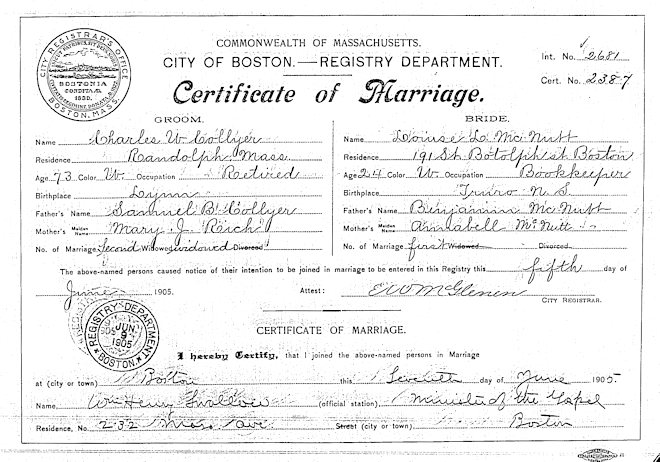 COMMONWEALTH OF MASSACHUSETTS.
CITY OF BOSTON.—REGISTRY DEPARTMENT.
Int. No. 2681
Cert. No. 2387
CITY REGISTRAR'S OFFICE
BOSTONIA
CONDITA A.D.
1630.
BOSTON, MASS.
Certificate of Marriage.
GROOM. BRIDE.
Name Charles W Collyer Name Louise L. McNutt
Residence Randolph Mass Residence 191 St Botolph st Boston
Age 73 Color W. Occupation Retired Age 24 Color W. Occupation Bookkeeper
Birthplace Lynn Birthplace Truro N.S.
Father's Name Samuel B. Collyer Father's Name Benjamin McNutt
Mother's Maiden Name Mary J. Rich Mother's Maiden Name Annabell McNutt
No. of Marriage second Widowed widowed Divorced No. of Marriage first Widowed Divorced
The above-named persons caused notice of their intention to be joined in marriage to be entered in this Registry this fifth day of
June 1905. Attest: EWMcGlenen
CITY REGISTRAR.
REGISTRY DEPARTMENT
JUN
1905
BOSTON.
CERTIFICATE OF MARRIAGE.
I hereby Certify, that I joined the above-named persons in Marriage
at (city or town) Boston this Seventh day of June 1905
Name, Wm Henry (official station), Minister of the Gospel
Residence, No. 232 Mass Ave Street (city or town), Boston